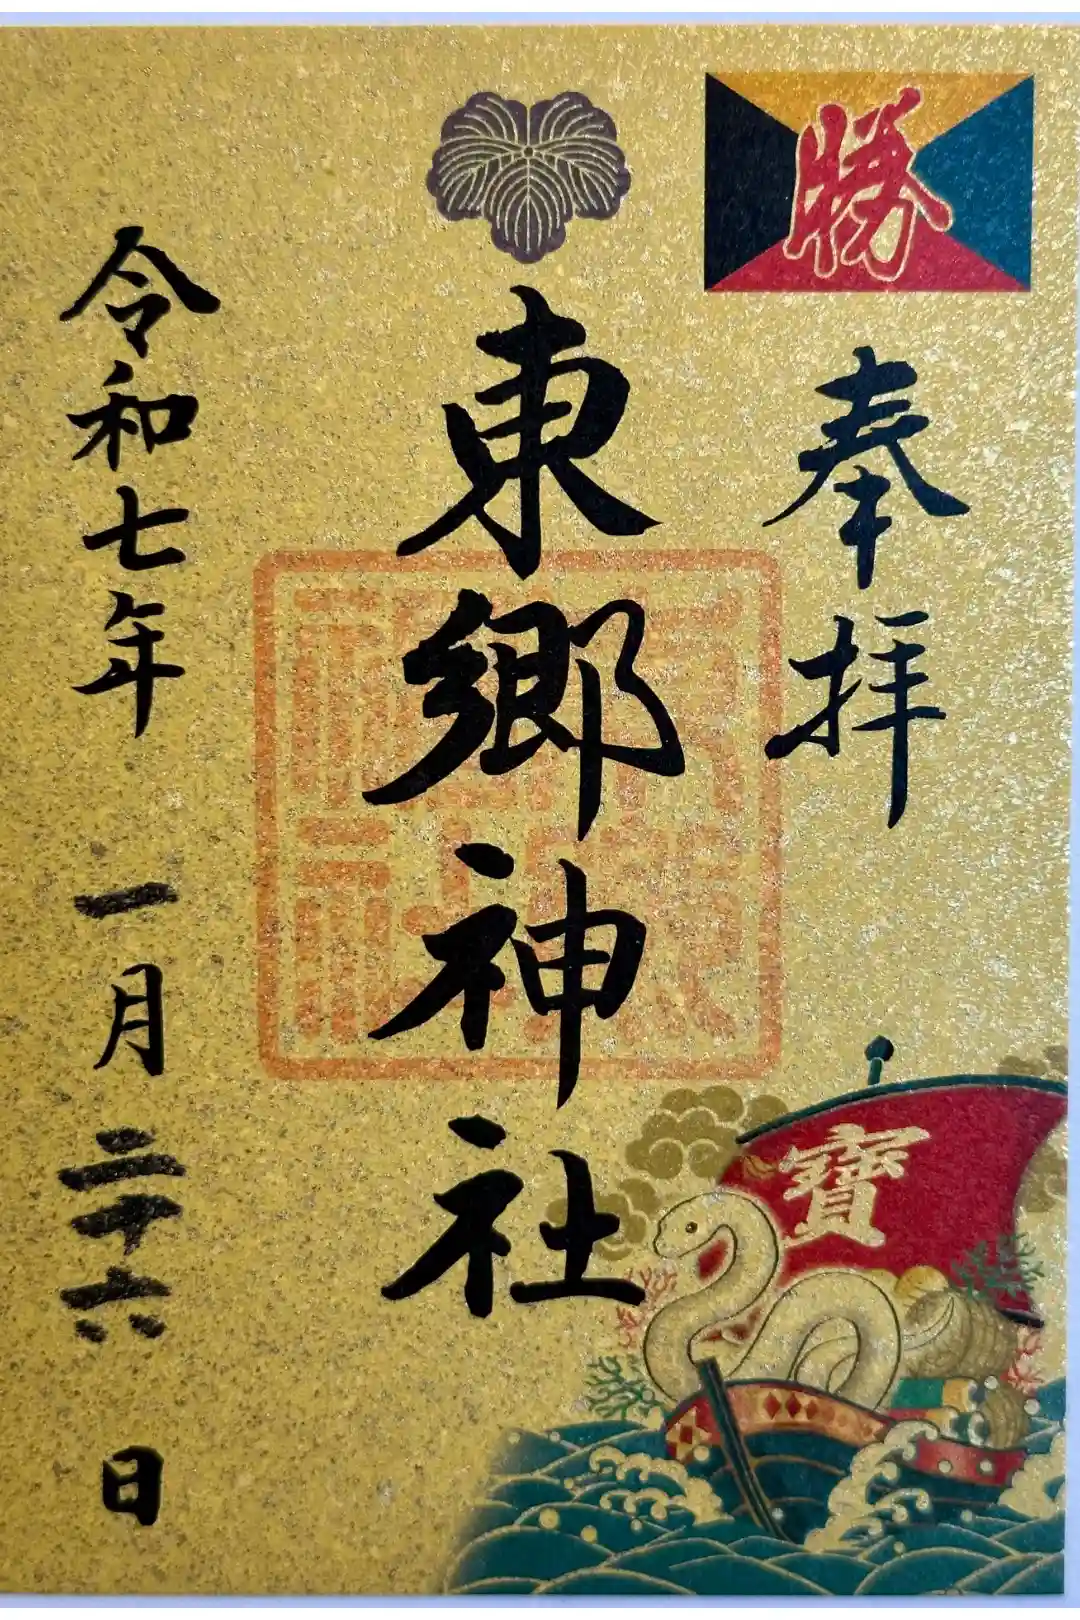 勝
奉拝
東郷神社
令和七年 一月 二十六 日
寶